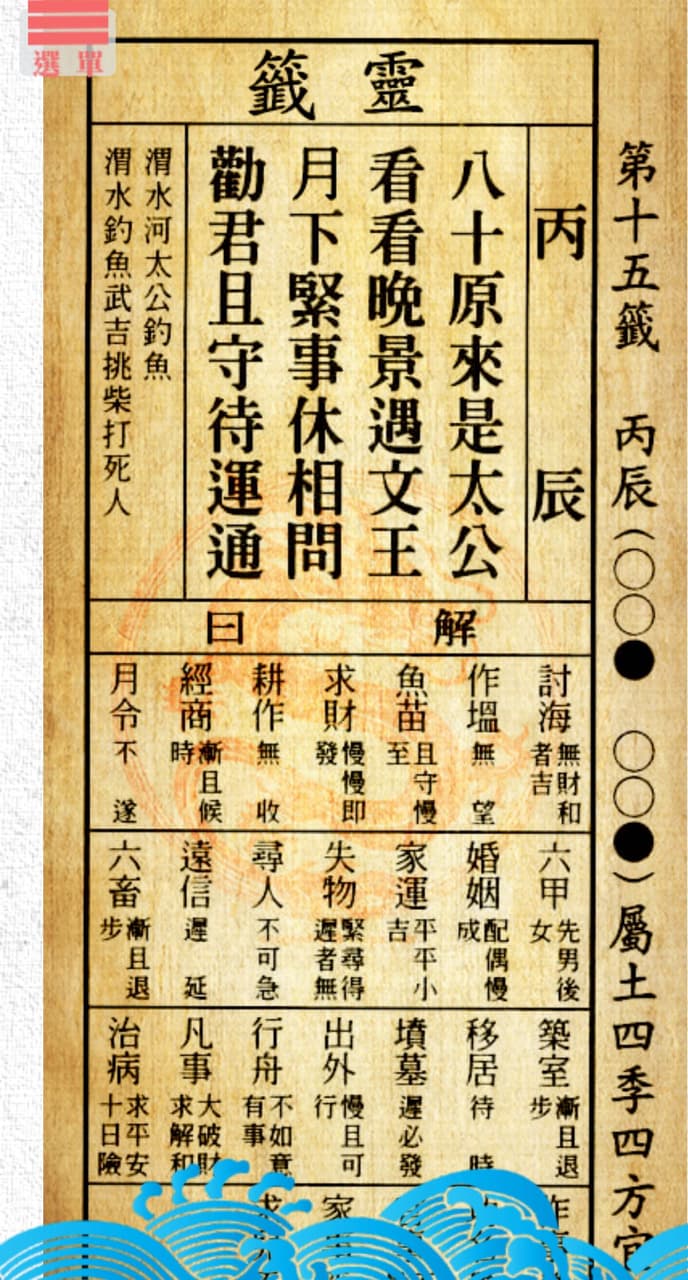 選單
靈籤
第十五籤 丙辰(○○● ○○●)屬土四季四方宜
丙辰
八十原來是太公
看看晚景遇文王
月下緊事休相問
勸君且守待運通
渭水河太公釣魚
渭水釣魚武吉挑柴打死人
解曰
討海 無財和者吉
作塭 無望
魚苗 且守慢至
求財 慢慢即發
耕作 無收
經商 漸且候時
月令 不遂
六甲 先男後女
婚姻 配偶慢成
家運 平平小吉
失物 緊尋得遲者無
尋人 不可急
遠信 遲延
六畜 漸且退步
築室 漸且退步
移居 待時
墳墓 遲必發
出外 慢且可行
行舟 不如意有事
凡事 大破財求解和
治病 求平安十日險